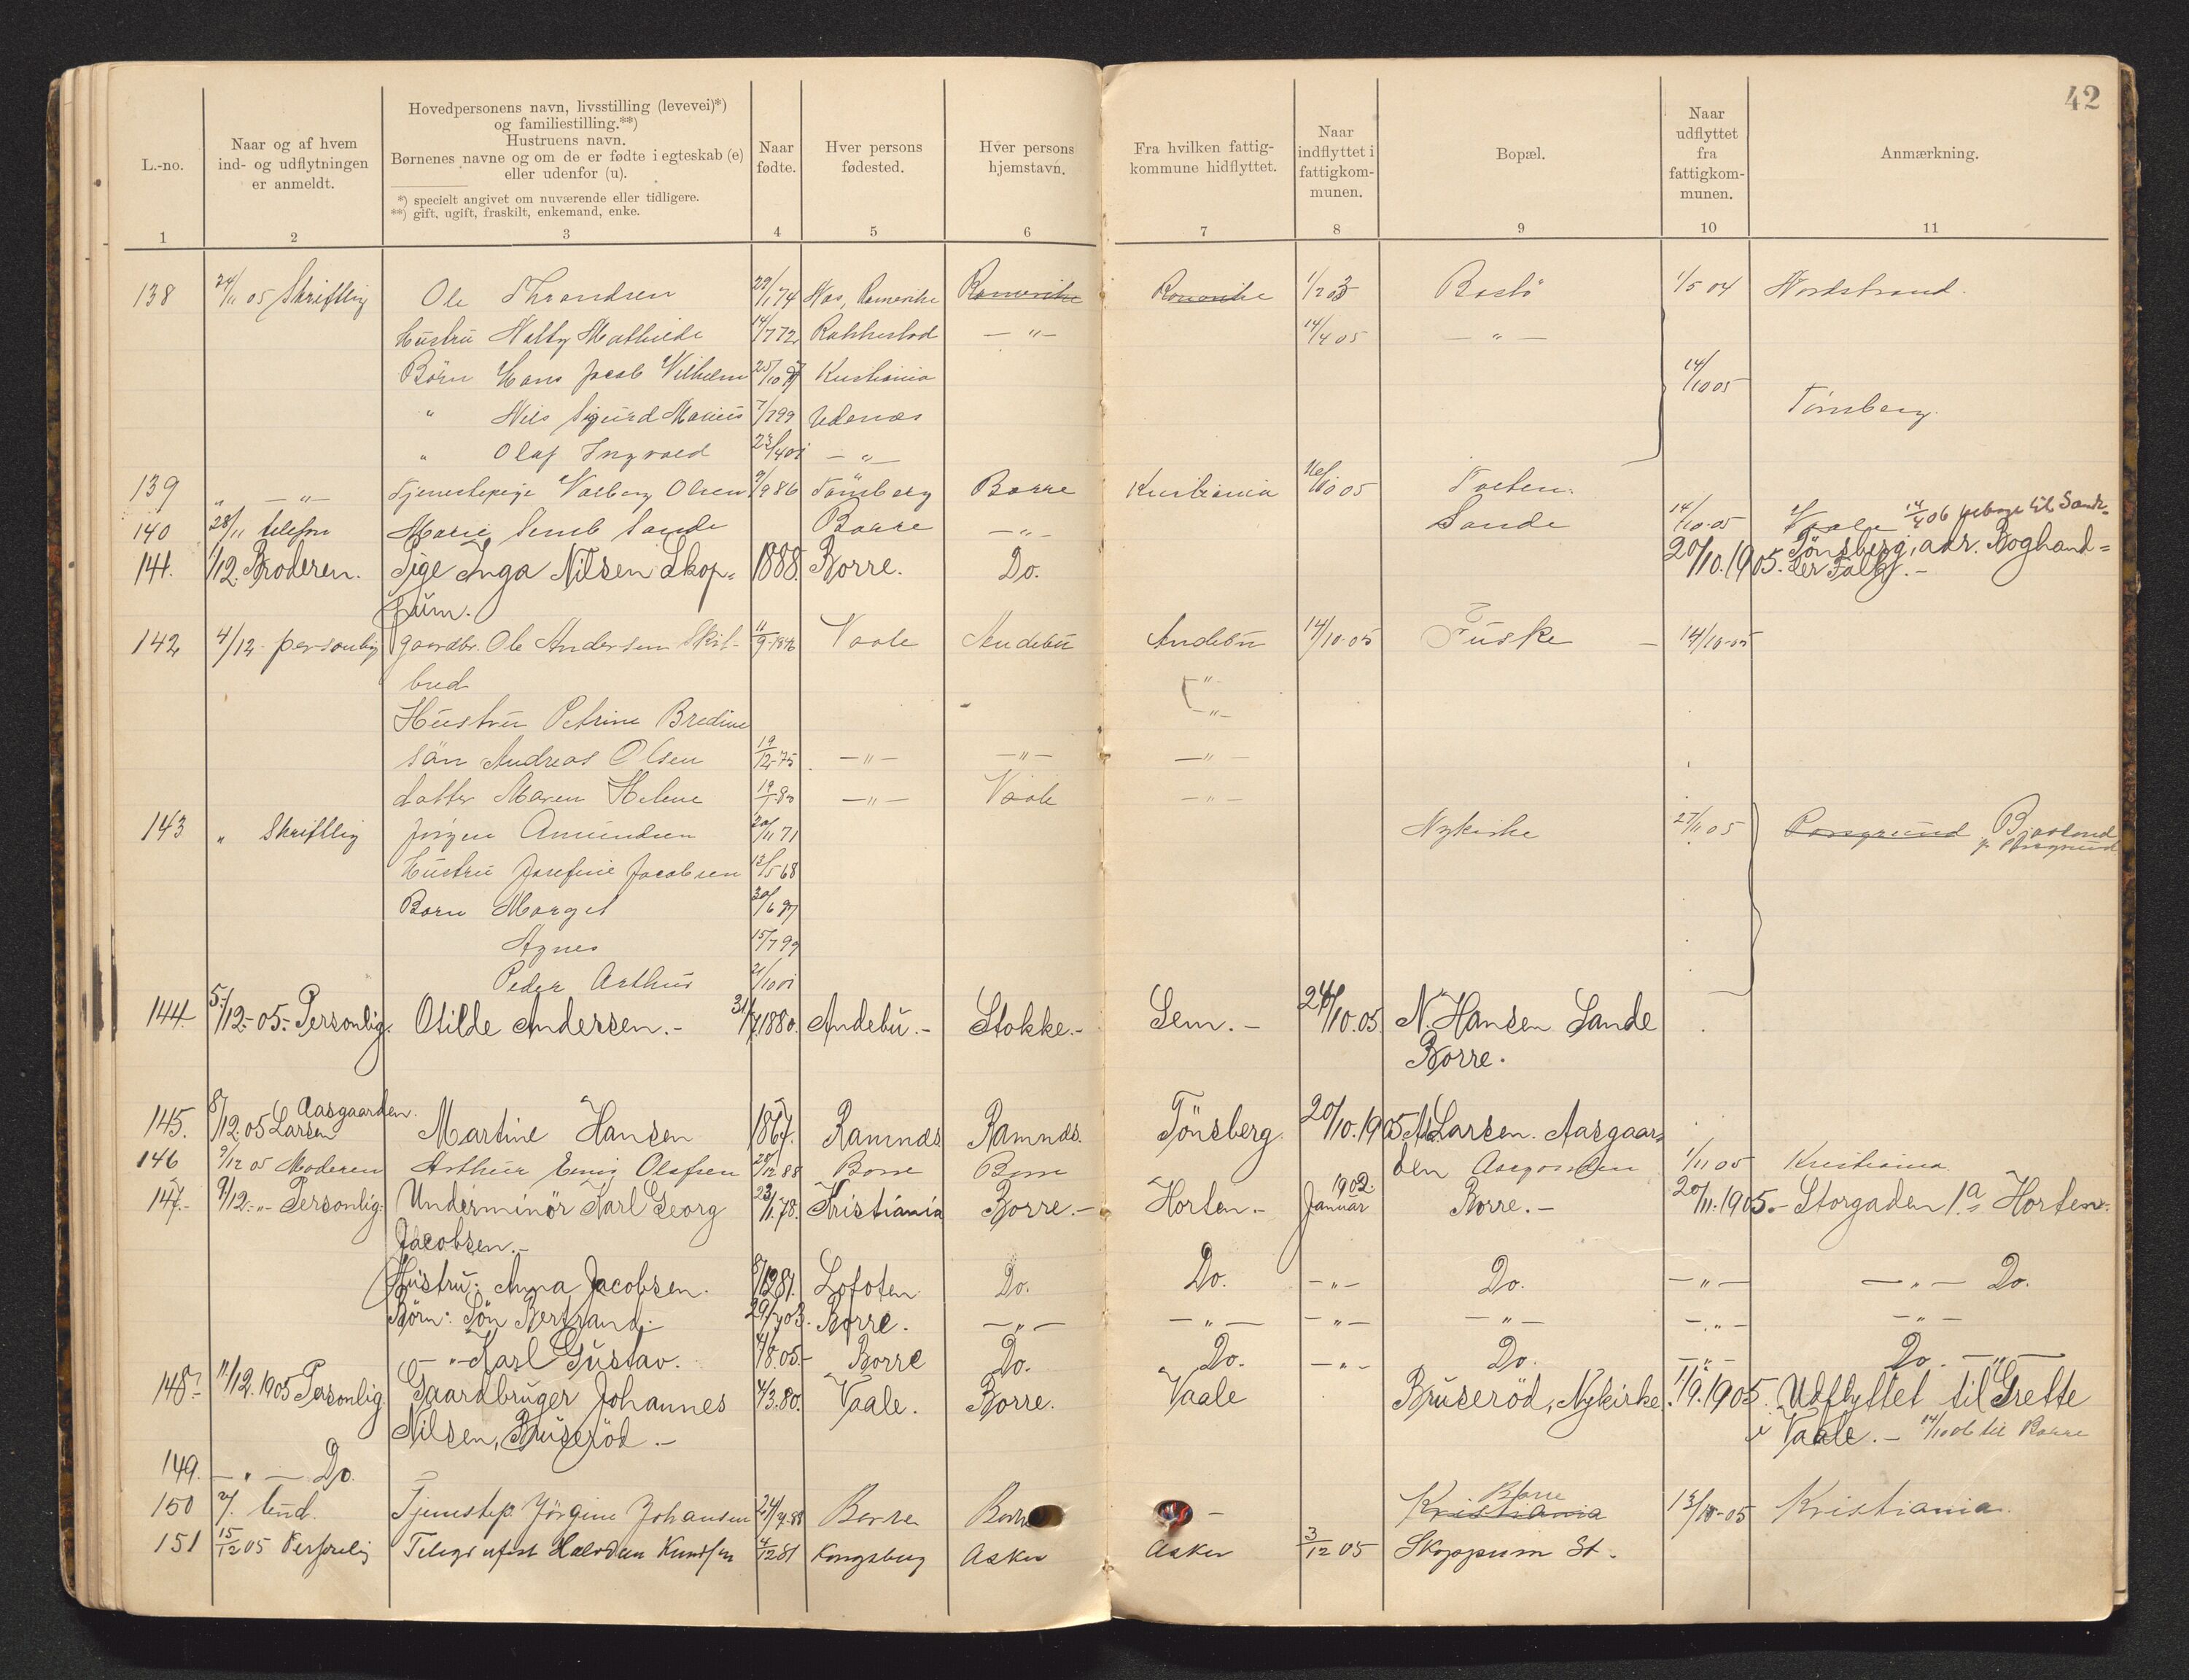 42
L.-no.
Naar og af hvem
ind- og udflytningen
er anmeldt.
Hovedpersonens navn, livsstilling (levevei)*)
og familiestilling.**)
Hustruens navn.
Børnenes navne og om de er fødte i egteskab (e)
eller udenfor (u).
*) specielt angivet om nuværende eller tidligere.
**) gift, ugift, fraskilt, enkemand, enke.
Naar
fødte.
Hver persons
fødested.
Hver persons
hjemstavn.
Fra hvilken fattig-
kommune hidflyttet.
Naar
indflyttet i
fattigkom-
munen.
Bopæl.
Naar
udflyttet
fra
fattigkom-
munen.
Anmærkning.
1 2 3 4 5 6 7 8 9 10 11
138 24/11 05 Skriftlig Ole Throndsen 23/1 74 Romerike Romerike Romerike 1/2 03 Bastö 1/5 04 Nordstrand.
Hustru Mathilde 14/7 72 Rakkestad — " — 14/4 05 — " —
Börn Hans Jacob Vilhelm 25/10 97 Kristiania 14/10 05
" Nils Sigurd Marius 7/7 99 Udenæs Tönsberg.
" Olaf Ingvald 23/4 01 — " —
139 " — " — Tjenestepige Valborg Olsen 9/9 86 Tönsberg Borre Kristiania 16/10 05 Torten.
140 28/11 telefon Marie Semb Sande Borre — " — Sande 14/10-05 Vaale 14/4 06 tilbage til Sande
141. 1/12. Broderen. Pige Inga Nilsen Skop= 1888. Borre. Do. 20/10.1905. Tönsberg, adr. Boghand=
pum. ler Falk. –
142 4/12 personlig Gaardbr. Ole Andersen Skil- 11/9-1846 Vaale Andebu Andebu 14/10-05 Fuske — 14/10-05
bred — " —
Hustru Petrine Bredine — " —
sön Andreas Olsen 19/12-75 — " — — " — — " —
datter Maren Helene 19/1 80 — " — Vaale — " —
143 " Skriftlig Jörgen Amundsen 20/11 71 Nykirke 27/11 05 Porsgrund Bjaaland
pr. Porsgrund
Hustru Josefine Jacobsen 13/5 68
Børn Margit 30/6 97
Agnes 15/7 99
Peder Arthur 21/10 01
144. 5/12.-05.- Personlig. Otilde Andersen.- 31/7 1880. Andebu.- Stokke.- Sem.- 24/10.05. N. Hansen Sande
Borre.
145. 8/12 05 Aasgaarden.
Larsen Martine Hansen 1867. Ramnds Ramnds. Tönsberg. 20/10.1905. A. Larsen. Aasgaar=
den
146 9/12 05 Moderen Arthur Olafsen 28/12 88 Borre Borre Aasgaarden 1/11 05 Kristiania
147.- 9/12.-"- Personlig. Underminör Karl Georg 23/11.78. Kristiania Borre.- Horten.- Januar 1902. Borre.- 20/11.1905.- Storgaden 1a, Horten.
Jacobsen.-
Hustru: Anna Jacobsen. 8/12 81. Lofoten Do. Do. — " — Do. — " — — " — Do.
Börn: Sön Bertrand. 29/7 03. Borre. — " — — " — — " — — " — — " — — " —
— " — Karl Gustav. 4/8.05.- Borre Do. Do. — " — Do. — " — Do. — " —
148.- 11/12.1905 Personlig. Gaardbruger Johannes 4/3.80. Vaale. Borre. Vaale Bruseröd, Nykirke. 1/9.1905. Udflyttet til Grette
Nilsen, Bruseröd.- i Vaale.- 14/10 06 til Borre
149. — " — Do.
150 Tjenestep. Jörgine Johansen 24/4.88 Borre Borre - Borre
Kristiania 13/10-05 Kristiania.
151 15/12 05 Personlig Telegrafist Halvdan Knudsen 4/12 81 Kongsberg Asker Asker 3/12 05 Skoppum St.